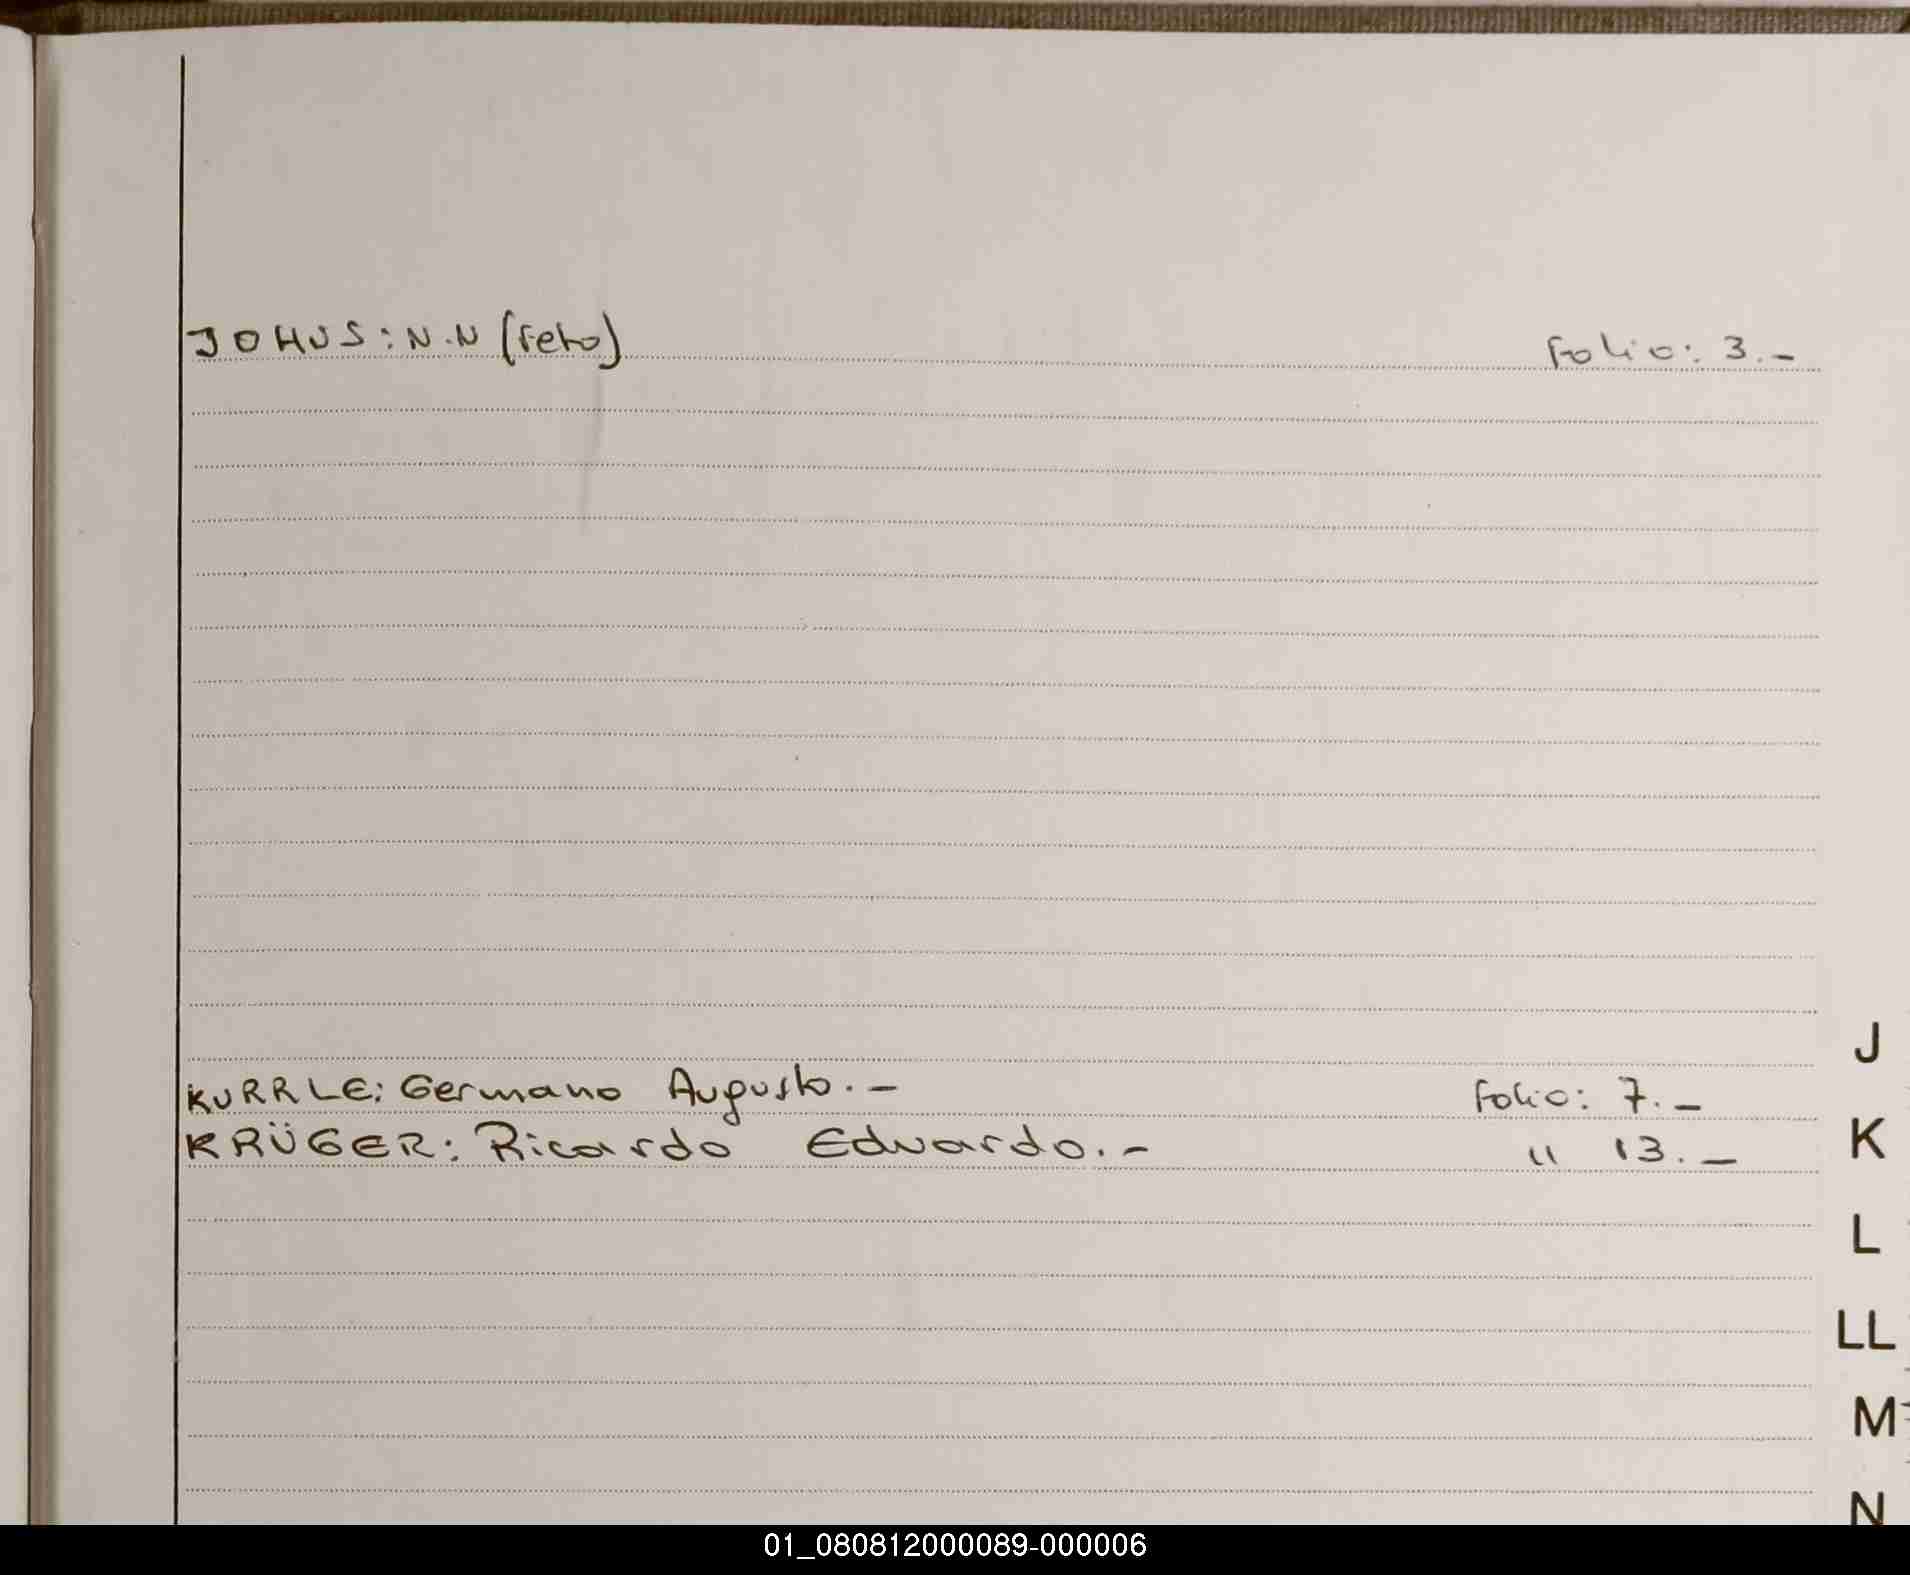 JOHNS: N.N (feto) Folio: 3.-
KURRLE: Germano Augusto.- Folio: 7.-
KRÜGER: Ricardo Eduardo.- " 13.-
J
K
L
LL
M
N
01_080812000089-000006